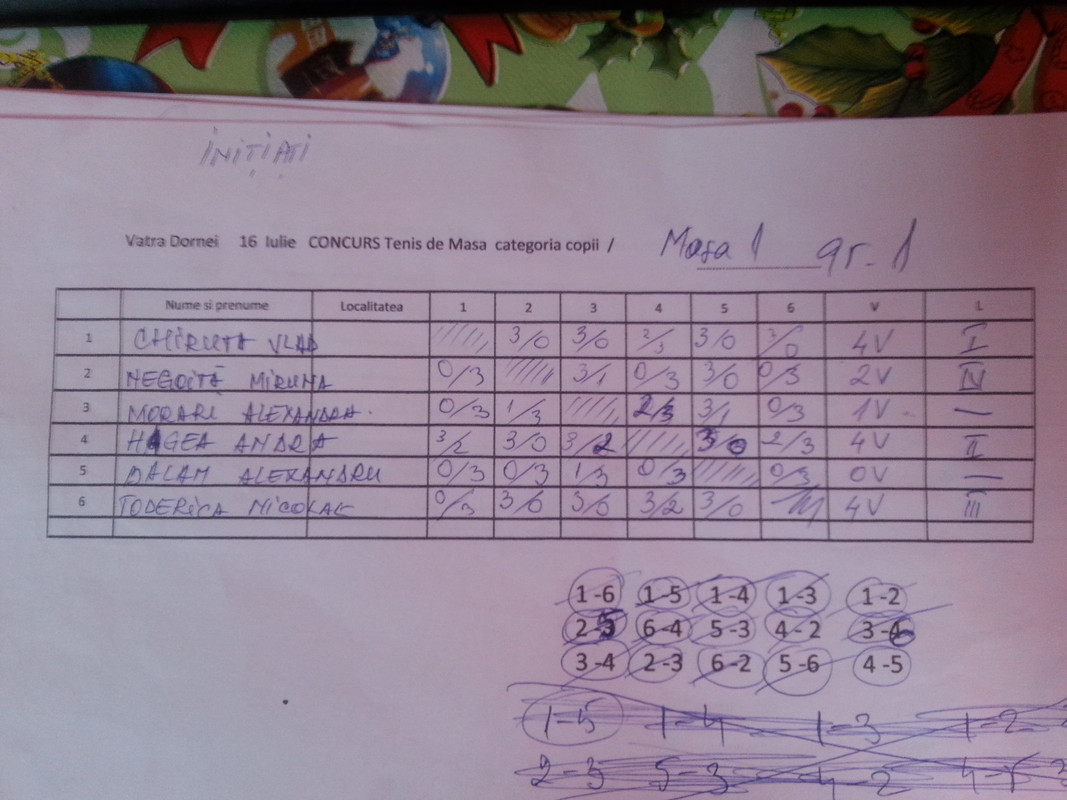 INIȚIATI
Vatra Dornei 16 Iulie CONCURS Tenis de Masa categoria copii / Masa 1 gr. 1
Nume si prenume Localitatea 1 2 3 4 5 6 V L
1 CHIRUTA VLAD 3/0 3/0 2/3 3/0 3/0 4V I
2 NEGOITĂ MIRUNA 0/3 3/1 0/3 3/0 0/3 2V IV
3 MORARI ALEXANDRA. 0/3 1/3 2/3 3/1 0/3 1V - —
4 HAGEA ANDRA 3/2 3/0 3/2 3/0 2/3 4V II
5 BALAM ALEXANDRU 0/3 0/3 1/3 0/3 0/3 0V —
6 TODERICA NICOLAE 0/3 3/0 3/0 3/2 3/0 4V III
1-6 1-5 1-4 1-3 1-2
2-5 6-4 5-3 4-2 3-6
3-4 2-3 6-2 5-6 4-5
1-5 1-4 1-3 1-2
2-3 5-3 4-2 4-5